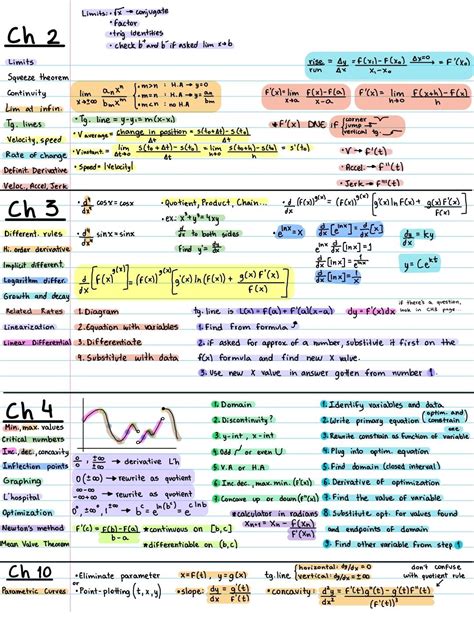 Ch 2
Limits
Squeeze theorem
Continuity
Lim at infin.
Tg. lines
Velocity, speed
Rate of change
Definit. Derivative
Veloc, Accel, Jerk
Limits: • √x → conjugate
• factor
• trig identities
• check b⁺ and b⁻ if asked lim x→b
lim x→±∞ aₙxⁿ / bₘxᵐ
• m>n : H.A → y=0
• m=n : H.A → y= aₙ/bₘ
• m<n : no H.A
• Tg. line = y-y₁=m(x-x₁)
• V average = change in position / Δt = s(t₀+Δt)-s(t₀) / Δt
• V instant. = lim Δt→0 s(t₀+Δt)-s(t₀) / Δt = lim h→0 s(t₀+h)-s(t₀) / h = s'(t₀)
• Speed = |Velocity|
rise/run = Δy/Δx = f(x₁)-f(x₀) / x₁-x₀ Δx→0 = F'(x₀)
F'(a) = lim x→a f(x)-f(a) / x-a
F'(x) = lim h→0 f(x+h)-f(x) / h
* F'(x) DNE if corner
jump
vertical tg.
• V → f'(t)
• Accel. → F''(t)
• Jerk → F'''(t)
Ch 3
Different. rules
Hi. order derivative
Implicit different.
Logarithm differ.
Growth and decay
Related Rates
Linearization
Linear Differential
cosx = cosx
sinx = sinx
• Quotient, Product, Chain...
• ex. x³y³=4xy
d/dx to both sides
Find y' = dy/dx
• d/dx (f(x))^g(x) = (f(x))^g(x) [g'(x) ln F(x) + g(x) F'(x) / F(x)]
• e^lnx = x
d/dx [e^lnx] = d/dx [x]
e^lnx d/dx [lnx] = 1
x d/dx [lnx] = 1
d/dx [lnx] = 1/x
dy/dx = ky
y = Ce^kt
d/dx [f(x)^g(x)] = (f(x))^g(x) [g'(x) ln(F(x)) + g(x) F'(x) / F(x)]
1. Diagram
2. Equation with variables
3. Differentiate
4. Substitute with data
tg. line is L(x) = F(a) + F'(a)(x-a)
dy = F'(x)dx
if there's a question,
look in CH3 page.
1. Find from formula
2. if asked for approx of a number, substitute it first on the
f(x) formula and find new x value.
3. Use new x value in answer gotten from number 1.
Ch 4
Min, max. values
Critical numbers
Inc, dec, concavity
Inflection points
Graphing
L'hospital
Optimization
Newton's method
Mean Value Theorem
0/0, ±∞/±∞ → derivative L'h
0(±∞) → rewrite as quotient
∞-∞ → rewrite as quotient
F'(c) = f(b)-F(a) / b-a
* continuous on [b,c]
* differentiable on (b,c)
1. Domain
2. Discontinuity?
3. y-int, x-int
4. Odd or even
5. V.A or H.A
6. Inc dec, max. min. (f'(x))
7. Concave up or down (f''(x))
* calculator in radians
xₙ₊₁ = Xₙ - F(Xₙ) / F'(Xₙ)
1. Identify variables and data
2. Write primary equation (optim. and) constrain one
3. Rewrite constrain as function of variable
4. Plug into optim. equation
5. Find domain (closed interval)
6. Derivative of optimization
7. Find the value of variable
8. Substitute opt. for values found
and endpoints of domain
9. Find other variable from step 1
Ch 10
Parametric Curves
• Eliminate parameter
or
• Point-plotting (t,x,y)
x=F(t), y=g(x)
• slope: dy/dx = g'(t) / F'(t)
tg. line
horizontal: dy/dx = 0
vertical: dx/dy = 0
don't confuse
with quotient rule
• concavity: d²y/dx² = f'(t)g''(t)-g'(t)f''(t) / (F'(t))³